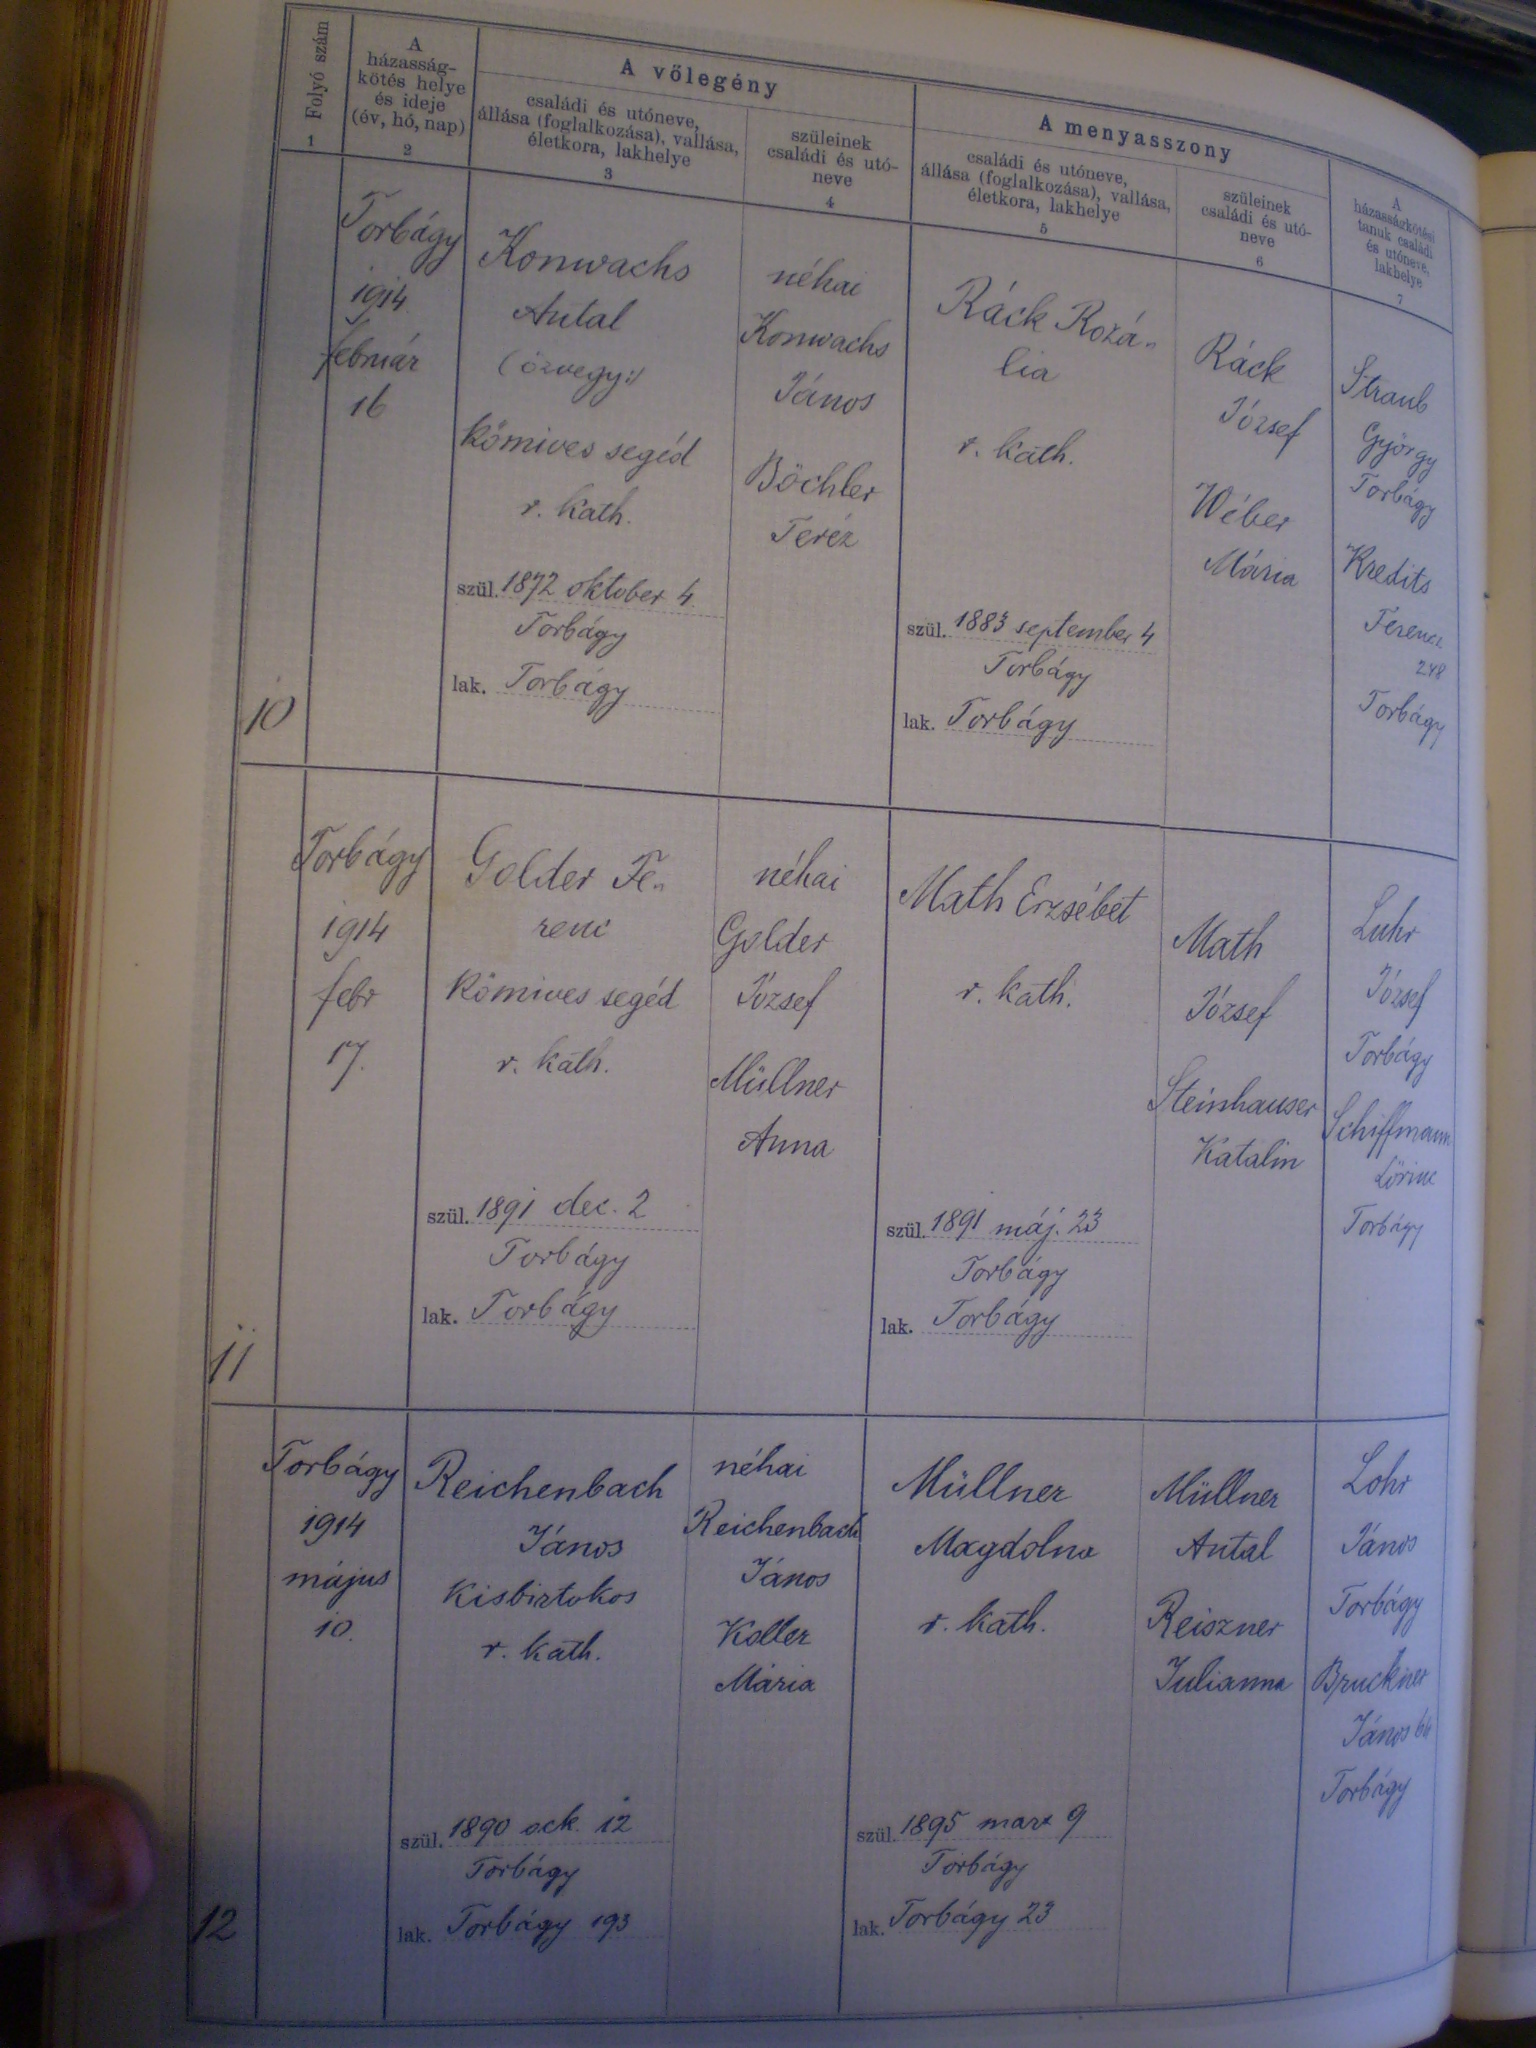 Folyó szám
1
A
házasság-
kötés helye
és ideje
(év, hó, nap)
2
A vőlegény
családi és utóneve,
állása (foglalkozása), vallása,
életkora, lakhelye
3
szüleinek
családi és utó-
neve
4
A menyasszony
családi és utóneve,
állása (foglalkozása), vallása,
életkora, lakhelye
5
szüleinek
családi és utó-
neve
6
A
házasságkötési
tanuk családi
és utóneve,
lakhelye
7
10
Torbágy
1914
február
16
Konwachs
Antal
(özvegy:)
kömives segéd
r. kath.
szül. 1872 oktober 4
Torbágy
lak. Torbágy
néhai
Konwachs
János
Böchler
Teréz
Ráck Rozá„
lia
r. kath.
szül. 1883 september 4
Torbágy
lak. Torbágy
Ráck
József
Wéber
Mária
Straub
György
Torbágy
Kredits
Ferencz
248
Torbágy
11
Torbágy
1914
febr
17.
Golder Fe„
renc
kömives segéd
r. kath.
szül. 1891 dec. 2
Torbágy
lak. Torbágy
néhai
Golder
József
Müllner
Anna
Math Erzsébet
r. kath.
szül. 1891 máj. 23
Torbágy
lak. Torbágy
Math
József
Steinhauser
Katalin
Luhr
József
Torbágy
Schiffmann
Lörinc
Torbágy
12
Torbágy
1914
május
10.
Reichenbach
János
Kisbirtokos
r. kath.
szül. 1890 ock. 12
Torbágy
lak. Torbágy 193
néhai
Reichenbach
János
Koller
Mária
Müllner
Magdolna
r. kath.
szül. 1895 marz 9
Torbágy
lak. Torbágy 23
Müllner
Antal
Reiszner
Julianna
Lohr
János
Torbágy
Bruckner
János 64
Torbágy